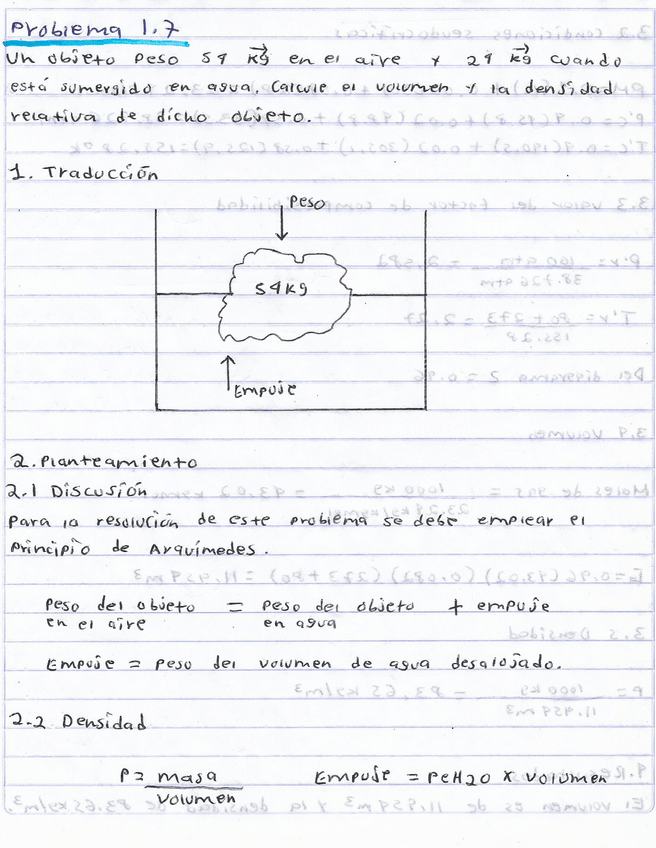 Problema 1.7
Un objeto peso 54 kg en el aire y 24 kg cuando
está sumergido en agua. Calcule el volumen y la densidad
relativa de dicho objeto.
1. Traducción
Peso
54 kg
Empuje
2. Planteamiento
2.1 Discusión
Para la resolución de este problema se debe emplear el
Principio de Arquímedes.
Peso del objeto = Peso del objeto + empuje
en el aire en agua
Empuje = Peso del volumen de agua desalojado.
2.2 Densidad
P = masa Empuje = PeH2O x volumen
volumen